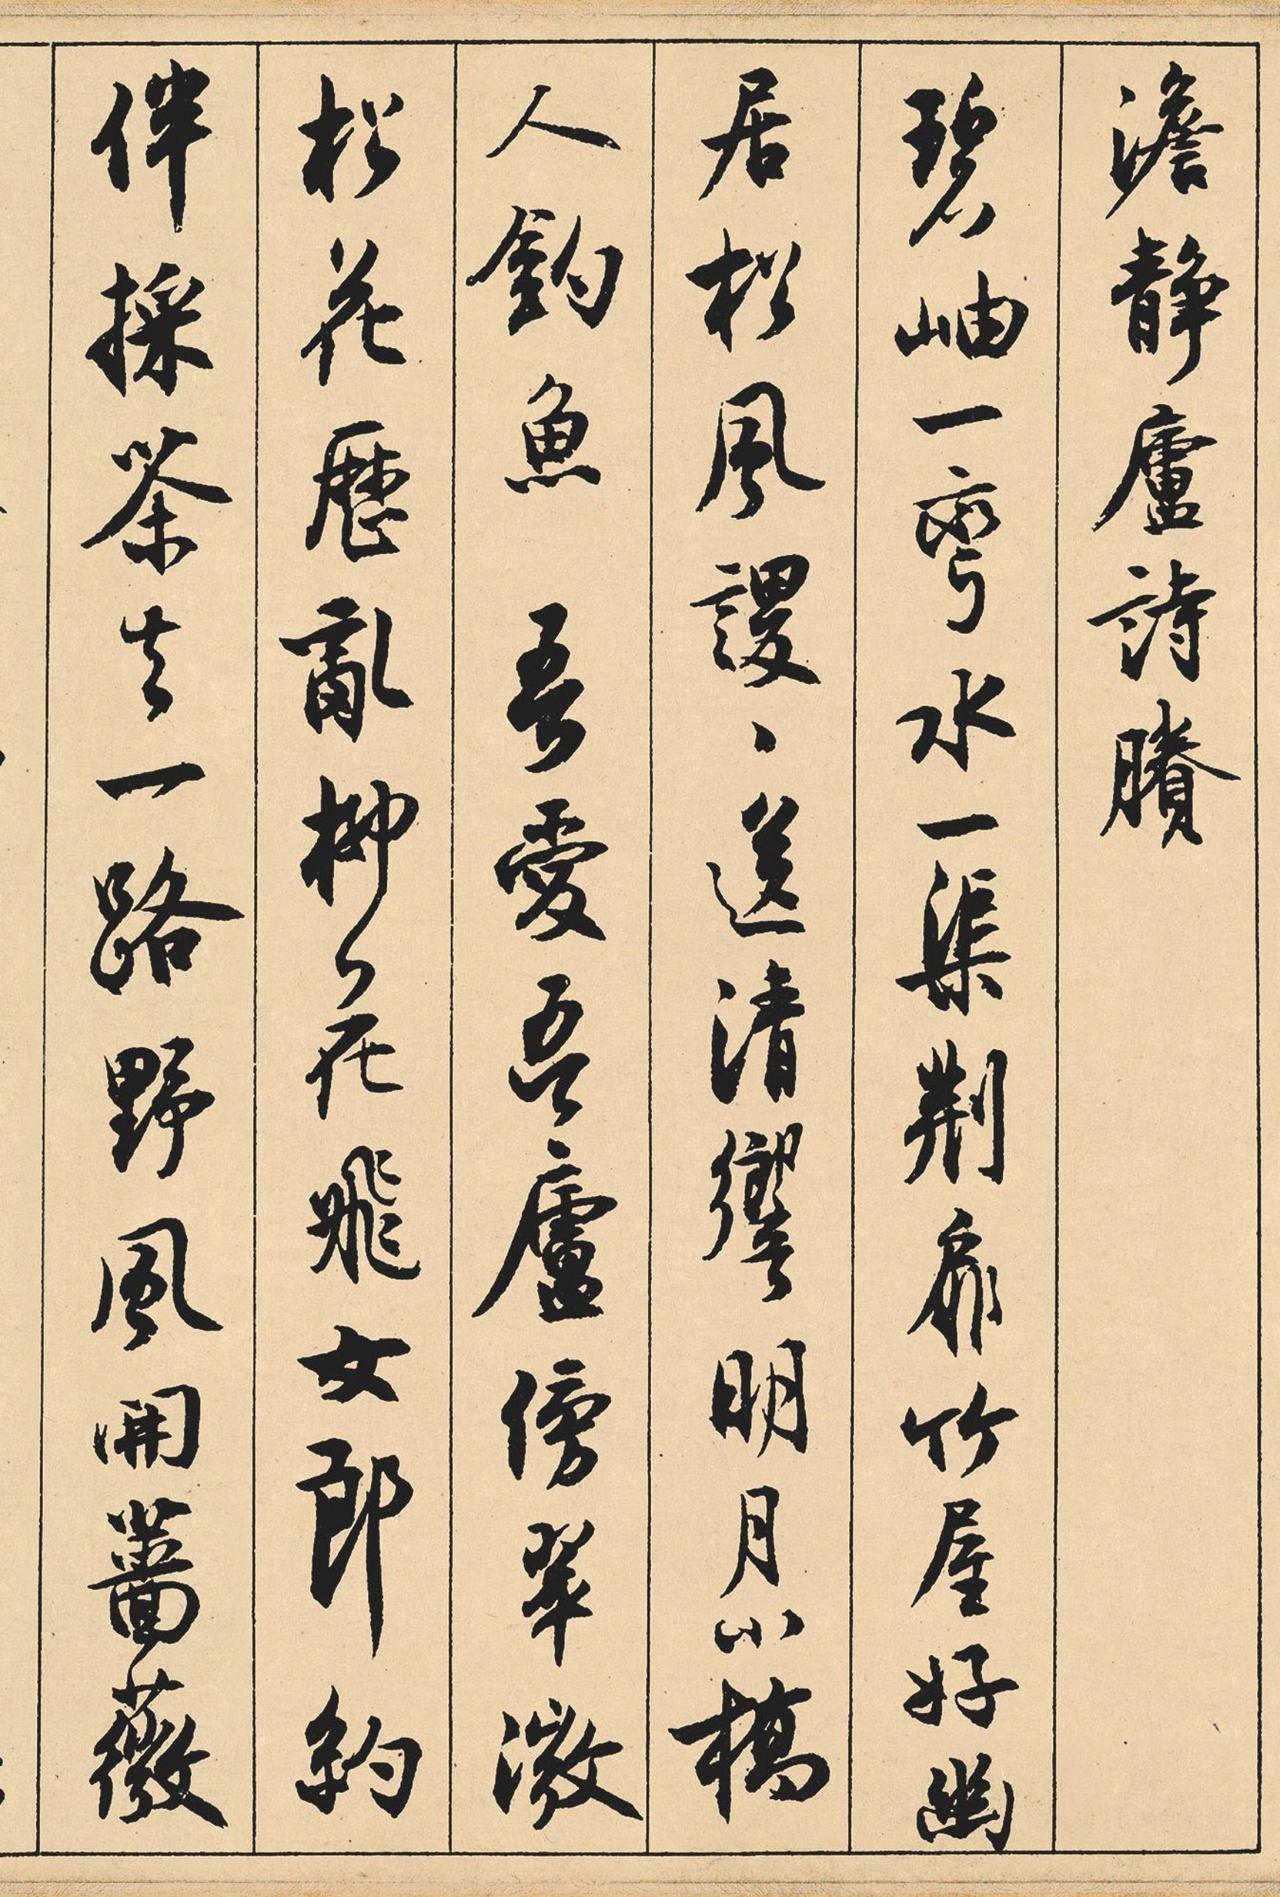 澹靜廬詩賸
碧岫一彎水一渠荆扉竹屋好幽
居松風謖〻送清響明月小橋
人釣魚 吾愛吾廬傍翠微
松花歷亂柳花飛女郎約
伴採茶去一路野風開薔薇